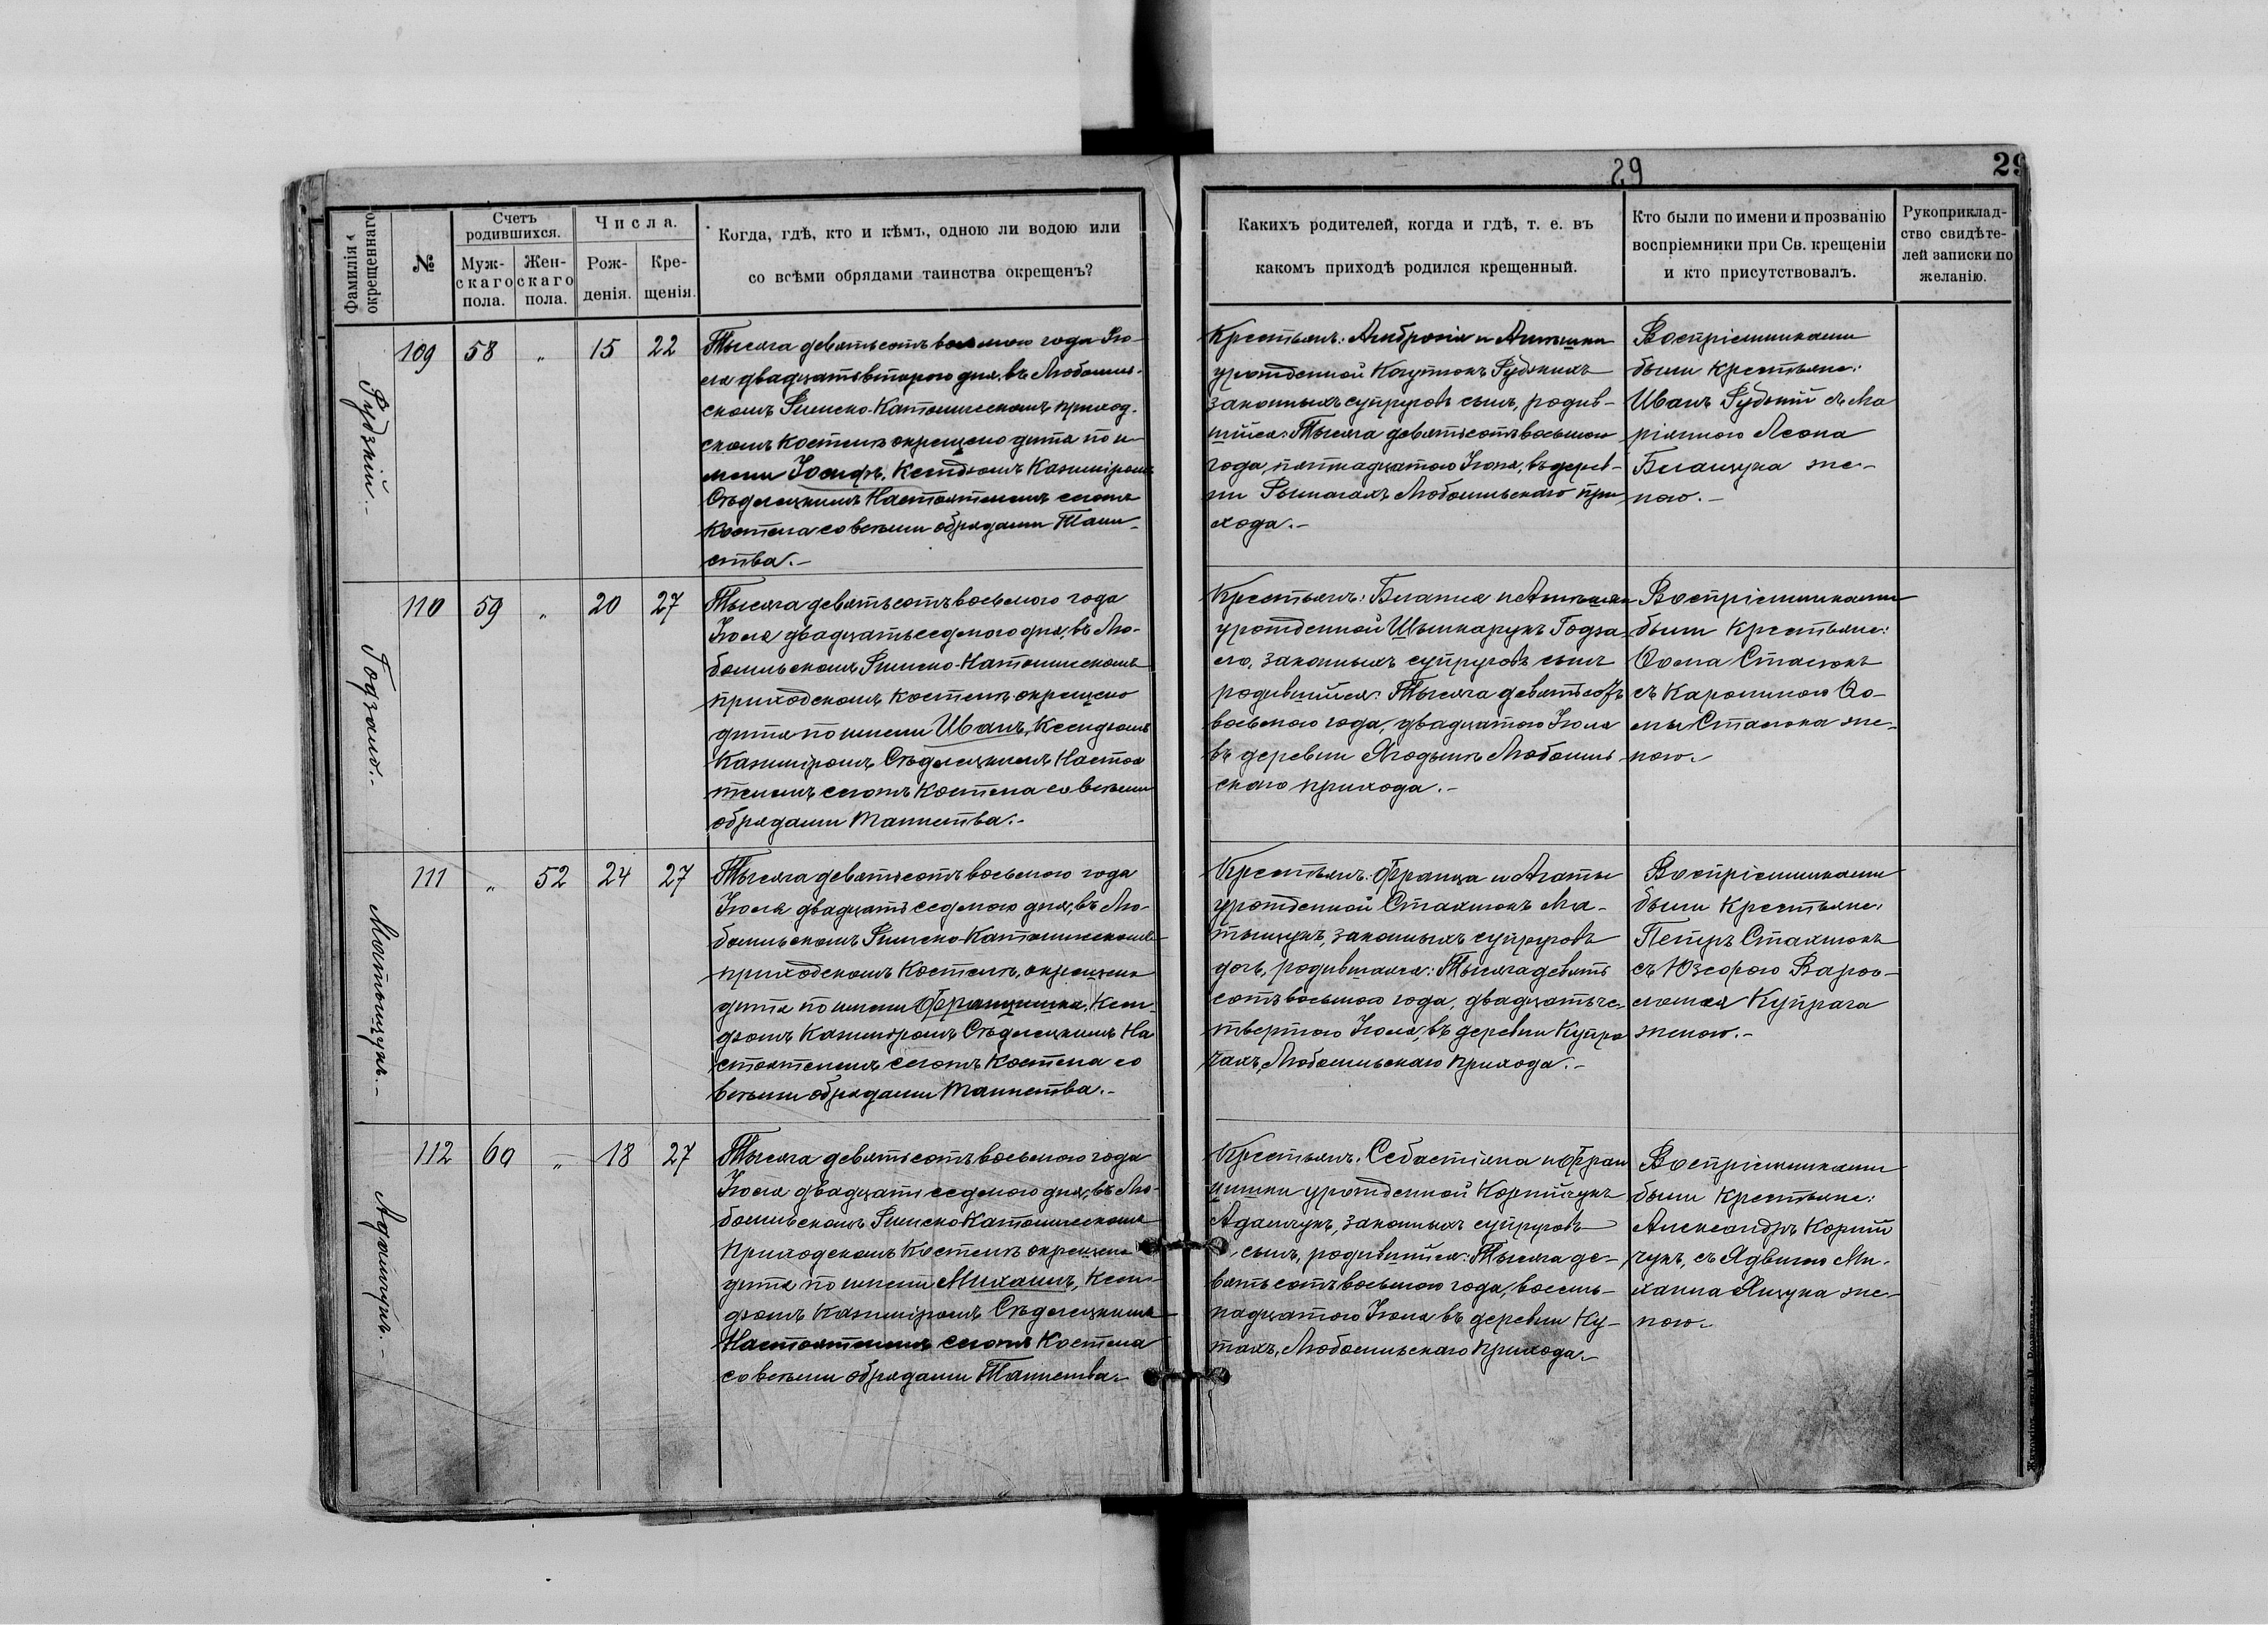 29
29
Фамилія
окрещеннаго
№
Счетъ
родившихся.
Муж-
скаго
пола.
Жен-
скаго
пола.
Числа.
Рож-
денія.
Кре-
щенія.
Когда, гдѣ, кто и кѣмъ, одною ли водою или
со всѣми обрядами таинства окрещенъ?
Какихъ родителей, когда и гдѣ, т. е. въ
какомъ приходѣ родился крещенный.
Кто были по имени и прозванію
воспріемники при Св. крещеніи
и кто присутствовалъ.
Рукоприклад-
ство свидѣте-
лей записки по
желанію.
Рудзкій.-
109 58 " 15 22
Тысяча девятьсотъ восьмого года Ію-
ля двадцать второго дня, въ Любомль-
скомъ Римско-Католическомъ приход-
скомъ костелѣ окрещено дитя по и-
мени Іосифъ, Ксендзомъ Казиміромъ
Сѣдлецкимъ Настоятелемъ сегожъ
Костела со всѣми обрядами Таин-
ства.-
Крестьянъ: Амброзія и
урожденной Рудзкихъ
законныхъ супруговъ сынъ, родив-
шійся: Тысяча девятьсотъ восьмого
года, пятнадцатого Іюля, въ дерев-
ни Рымачахъ Любомльскаго при-
хода.-
Воспріемниками
были крестьяне:
Иванъ Рудзкій съ Ма
ріянною Леона
же-
ною.-
Годзало.-
110 59 " 20 27
Тысяча девятьсотъ восьмого года
Іюля двадцать седмого дня, въ Лю-
бомльскомъ Римско-Католическомъ
приходскомъ костелѣ окрещено
дитя по имени Иванъ, Ксендзомъ
Казиміромъ Сѣдлецкимъ Настоя
телемъ сегожъ Костела со всѣми
обрядами Таинства.-
Крестьянъ: и
урожденной Годза-
ло, законныхъ супруговъ сынъ
родившійся: Тысяча девятьсотъ
восьмого года, двадцатого Іюля
въ деревни Ягодынѣ Любомль
скаго прихода.-
Воспріемниками
были крестьяне:
Ѳома Стасюкъ
съ Каролиною Ѳо-
мы Стасюка же-
ною.-
Матыщукъ.-
111 " 52 24 27
Тысяча девятьсотъ восьмого года
Іюля двадцать седмого дня, въ Лю-
бомльскомъ Римско-Католическомъ
приходскомъ Костелѣ, окрещено
дитя по имени Францишка, Ксен-
дзомъ Казиміромъ Сѣдлецкимъ На
стоятелемъ сегожъ Костела со
всѣми обрядами Таинства.-
Крестьянъ: Франца и Агаты
урожденной Стахнюкъ Ма-
тыщукъ, законныхъ супруговъ
дочь, родившаяся: Тысяча девять
сотъ восьмого года, двадцать че-
твертого Іюля, въ деревни Купра
чахъ, Любомльскаго прихода.-
Воспріемниками
были крестьяне:
Петръ Стахнюкъ
съ Юзефою Варѳо-
ломея Купрача
женою.-
Адамчукъ.-
112 60 " 18 27
Тысяча девятьсотъ восьмого года
Іюля двадцать седмого дня, въ Лю-
бомльскомъ Римско-Католическомъ
Приходскомъ Костелѣ окрещено
дитя по имени Михаилъ, Ксен-
дзомъ Казиміромъ Сѣдлецкимъ
Настоятелемъ сегожъ Костела
со всѣми обрядами Таинства.-
Крестьянъ: Себастіяна и Фран
цишки урожденной Корнійчукъ
Адамчукъ, законныхъ супруговъ
сынъ, родившійся: Тысяча де-
вятьсотъ восьмого года, восем-
надцатого Іюля въ деревни Ку-
тахъ, Любомльскаго прихода.-
Воспріемниками
были крестьяне:
Александръ Корній
чукъ, съ Ядвигою Ми-
хаила Ящука же-
ною.-